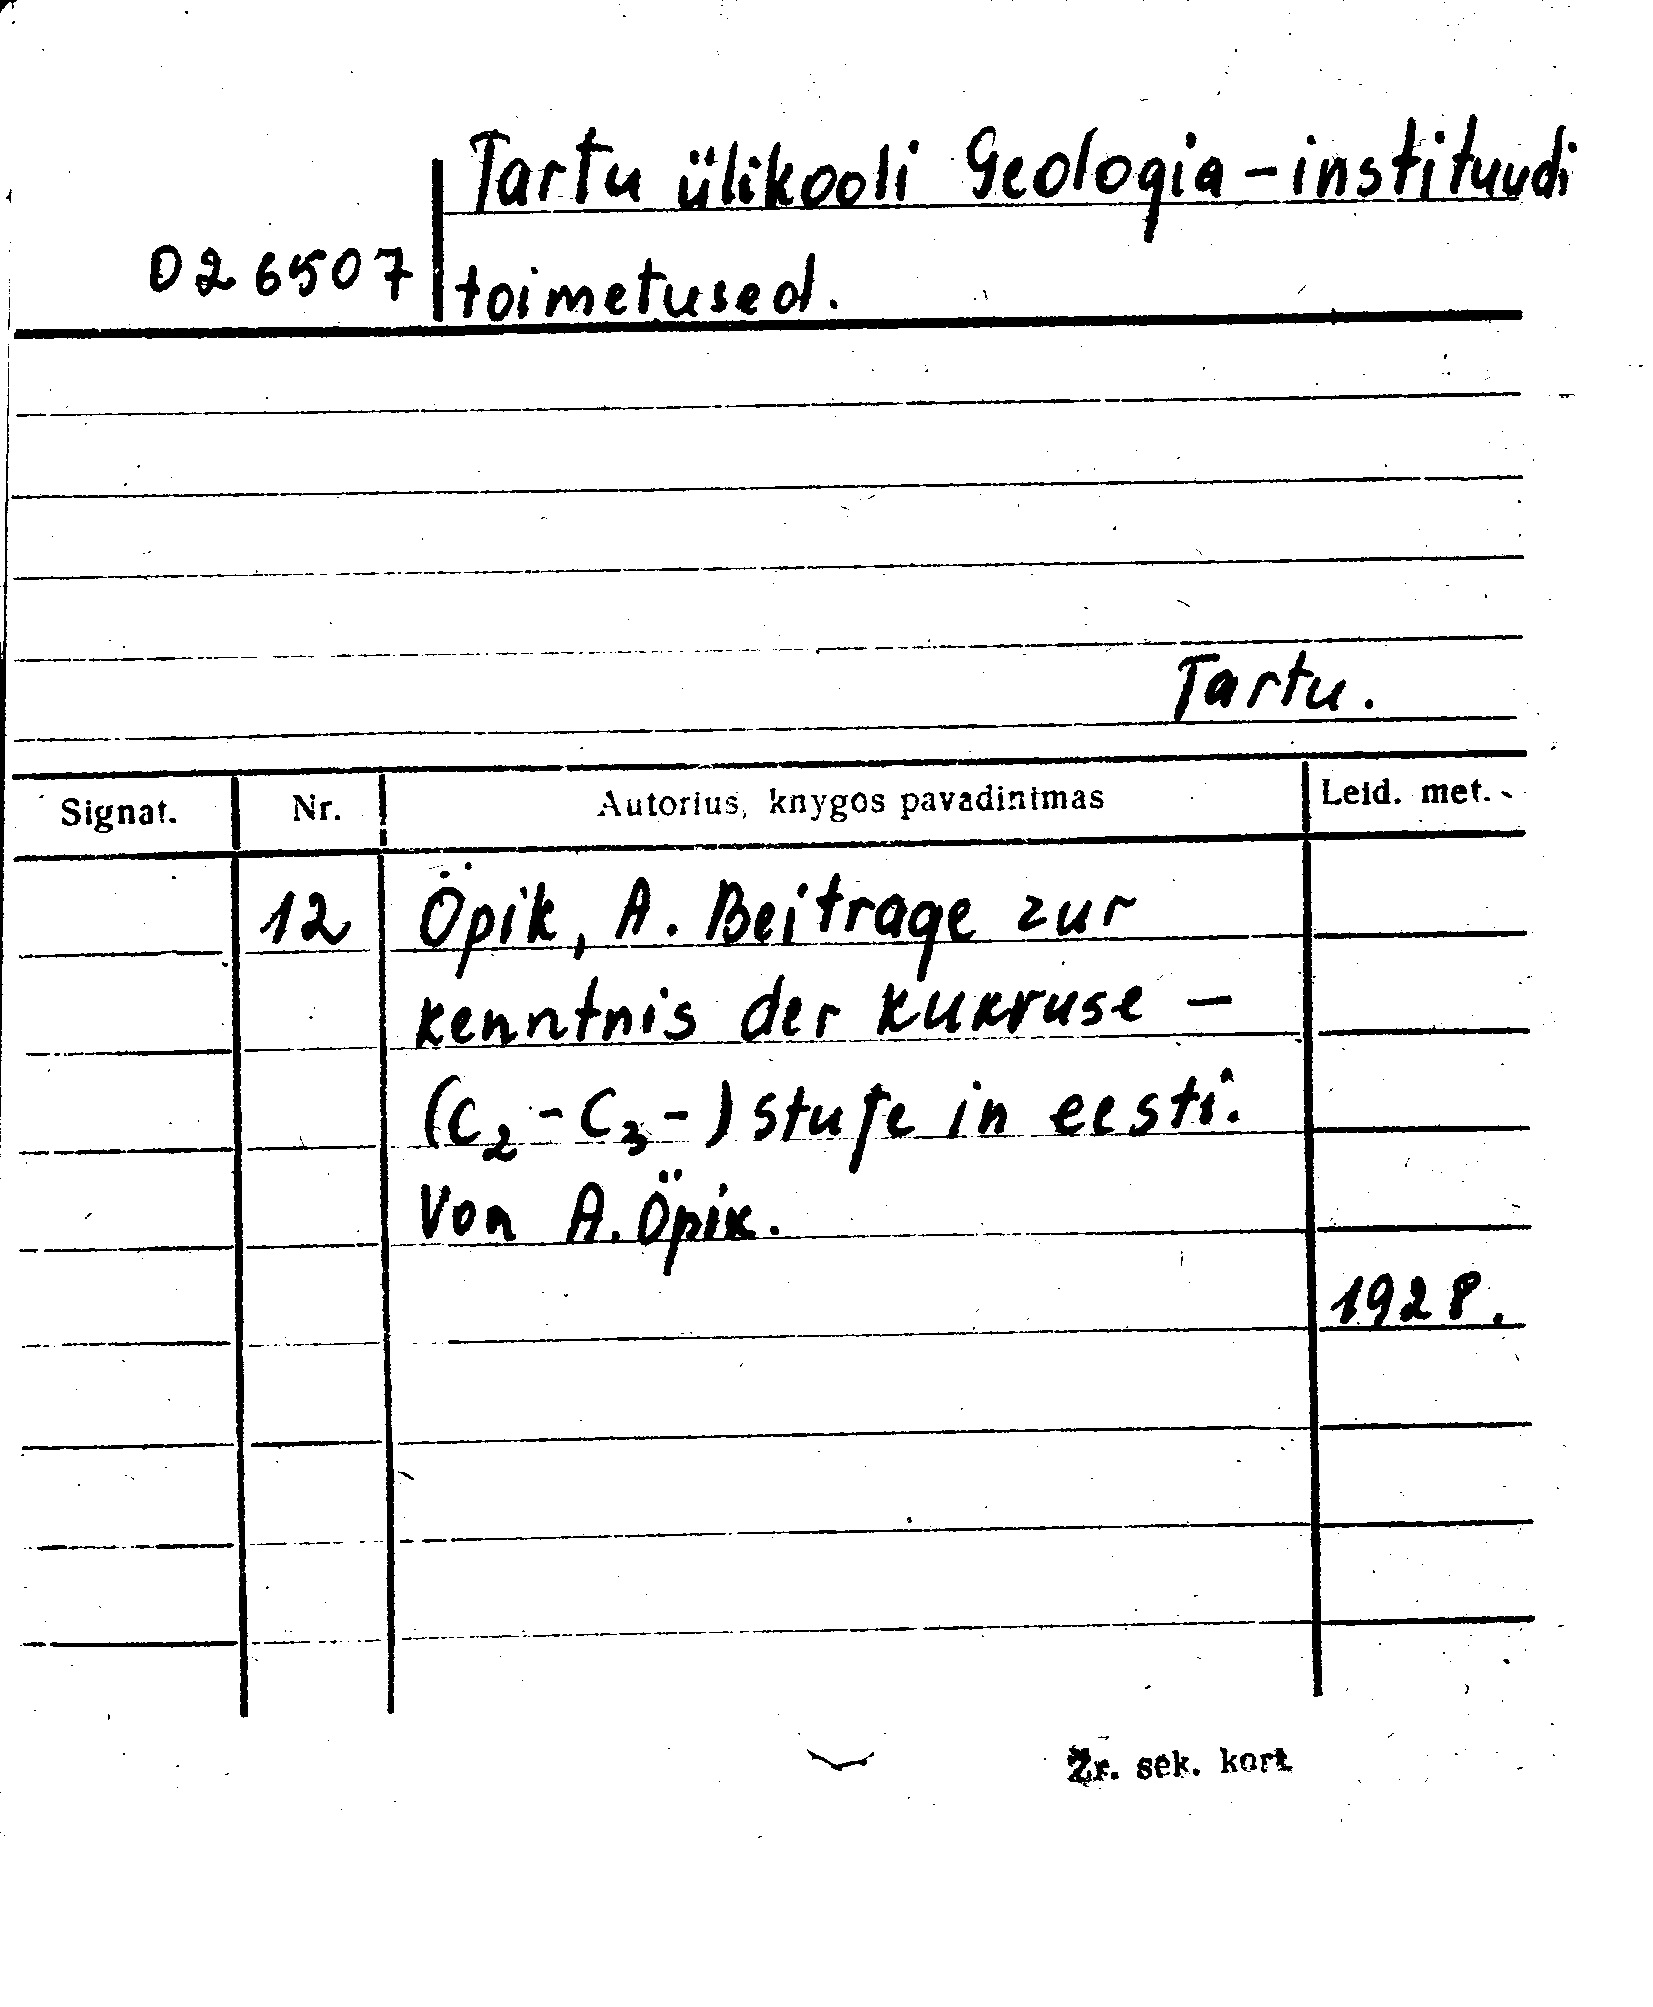 Tartu ülikooli Geologia-instituudi
026507 toimetused.
Tartu.
Signat. Nr. Autorius, knygos pavadinimas Leid. met.
12 Öpik, A. Beitrage zur
kenntnis der kukruse -
(C₂-C₃-) stufe in eesti.
Von A. Öpik.
1928.
Žr. sek. kort.